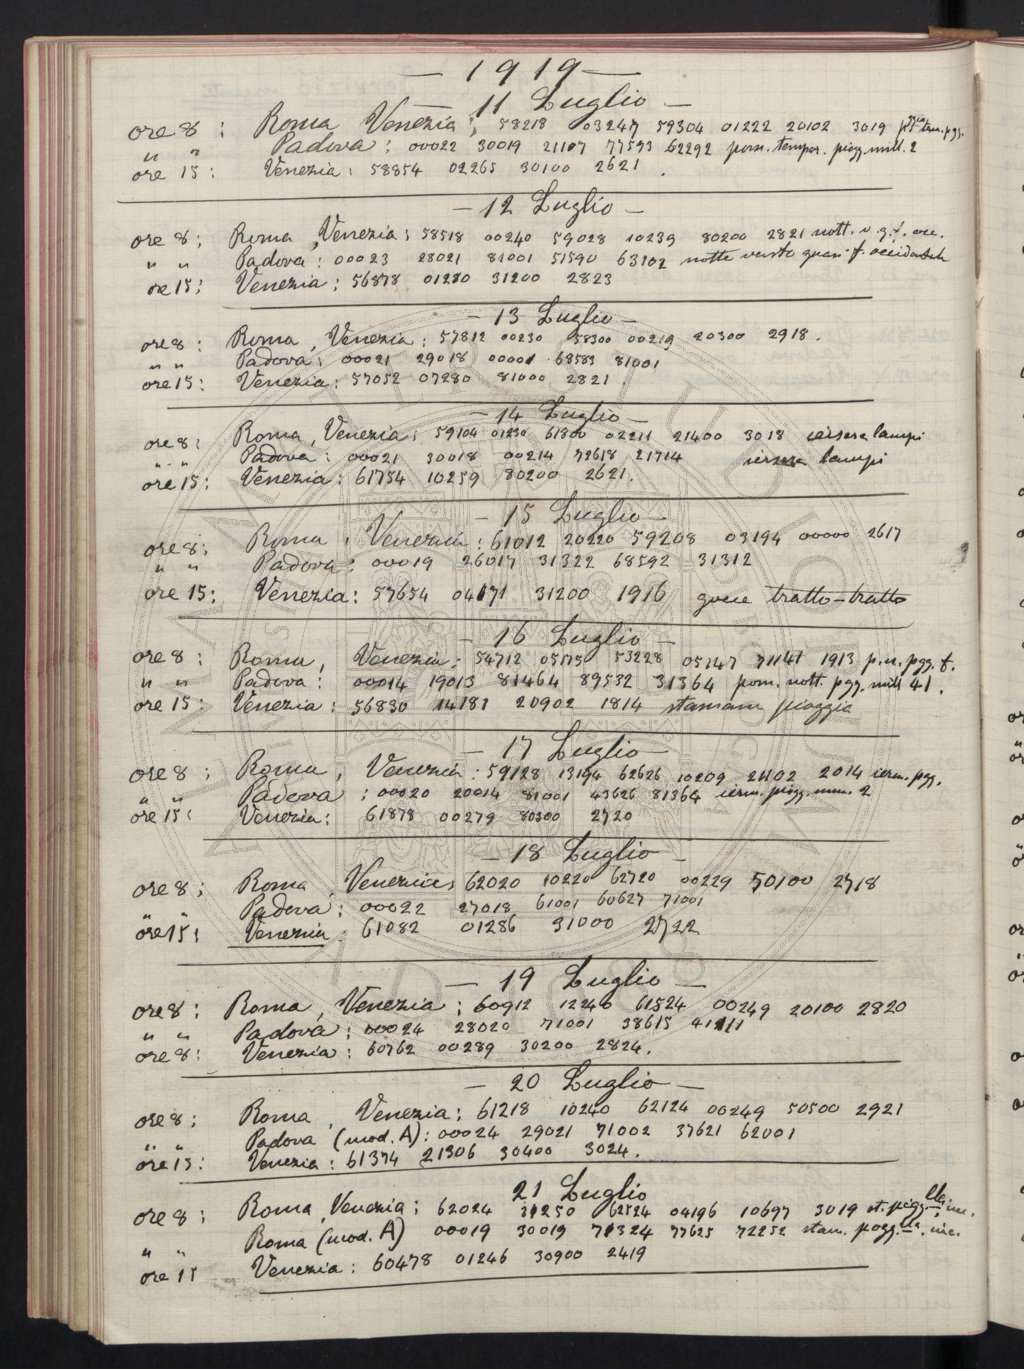 — 1919 —
— 11 Luglio —
ore 8 : Roma Venezia : 58218 03247 59304 01222 20102 3019
" " Padova : 00022 30019 21107 77593 62292 pom. tempor. piogg. mill. 2
ore 15 : Venezia : 58854 02265 30100 2621 .
— 12 Luglio —
ore 8 : Roma , Venezia : 58518 00240 59028 10239 80200 2821 nott. v. q. f. occ.
" " Padova : 00023 28021 81001 51590 63102 notte vento quasi f. occidentale
ore 15 : Venezia : 56878 01280 31200 2823
— 13 Luglio —
ore 8 : Roma , Venezia : 57812 00230 58300 00219 20300 2918 .
" " Padova : 00021 29018 00001 68583 81001
ore 15 : Venezia : 57052 07280 81000 2821 .
— 14 Luglio —
ore 8 : Roma , Venezia : 59104 01230 61300 02211 21400 3018 iersera lampi
" " Padova : 00021 30018 00214 72618 21714 iersera lampi
ore 15 : Venezia : 61754 10259 80200 2621 .
— 15 Luglio —
ore 8 : Roma , Venezia : 61012 20220 59208 03194 00000 2617
" " Padova : 00019 26017 31322 68592 31312
ore 15 : Venezia : 57654 04171 31200 1916 gocce tratto-tratto
— 16 Luglio —
ore 8 : Roma , Venezia : 54712 05175 53228 05147 71141 1913 p. n. pgg. f.
" " Padova : 00014 19013 81464 89532 31364 pom. nott. pgg. mill 41 .
ore 15 : Venezia : 56830 14181 20902 1814 stamam pioggia
— 17 Luglio —
ore 8 : Roma , Venezia : 59128 13194 62626 10209 21102 2014 ierm. pgg.
" " Padova : 00020 20014 81001 43626 81364 ierm. piogg. mm. 2
ore 15 : Venezia : 61878 00279 80300 2720
— 18 Luglio —
ore 8 : Roma , Venezia : 62020 10220 62720 00229 50100 2718
" " Padova : 00022 27018 61001 60627 71001
ore 15 : Venezia : 61082 01286 31000 2722
— 19 Luglio —
ore 8 : Roma , Venezia : 60912 12240 61524 00249 20100 2820
" " Padova : 00024 28020 71001 38615 41111
ore 8 : Venezia : 60762 00289 30200 2824 .
— 20 Luglio —
ore 8 : Roma , Venezia : 61218 10240 62124 00249 50500 2921
" " Padova (mod. A) : 00024 29021 71002 37621 62001
ore 15 : Venezia : 61374 21306 30400 3024 .
21 Luglio
ore 8 : Roma , Venezia : 62024 31250 62524 04196 10697 3019 st. piogg.lla inc.
" " Roma (mod. A) 00019 30019 71324 77625 72252 stam. piogg.lla . inc.
ore 15 Venezia : 60478 01246 30900 2419